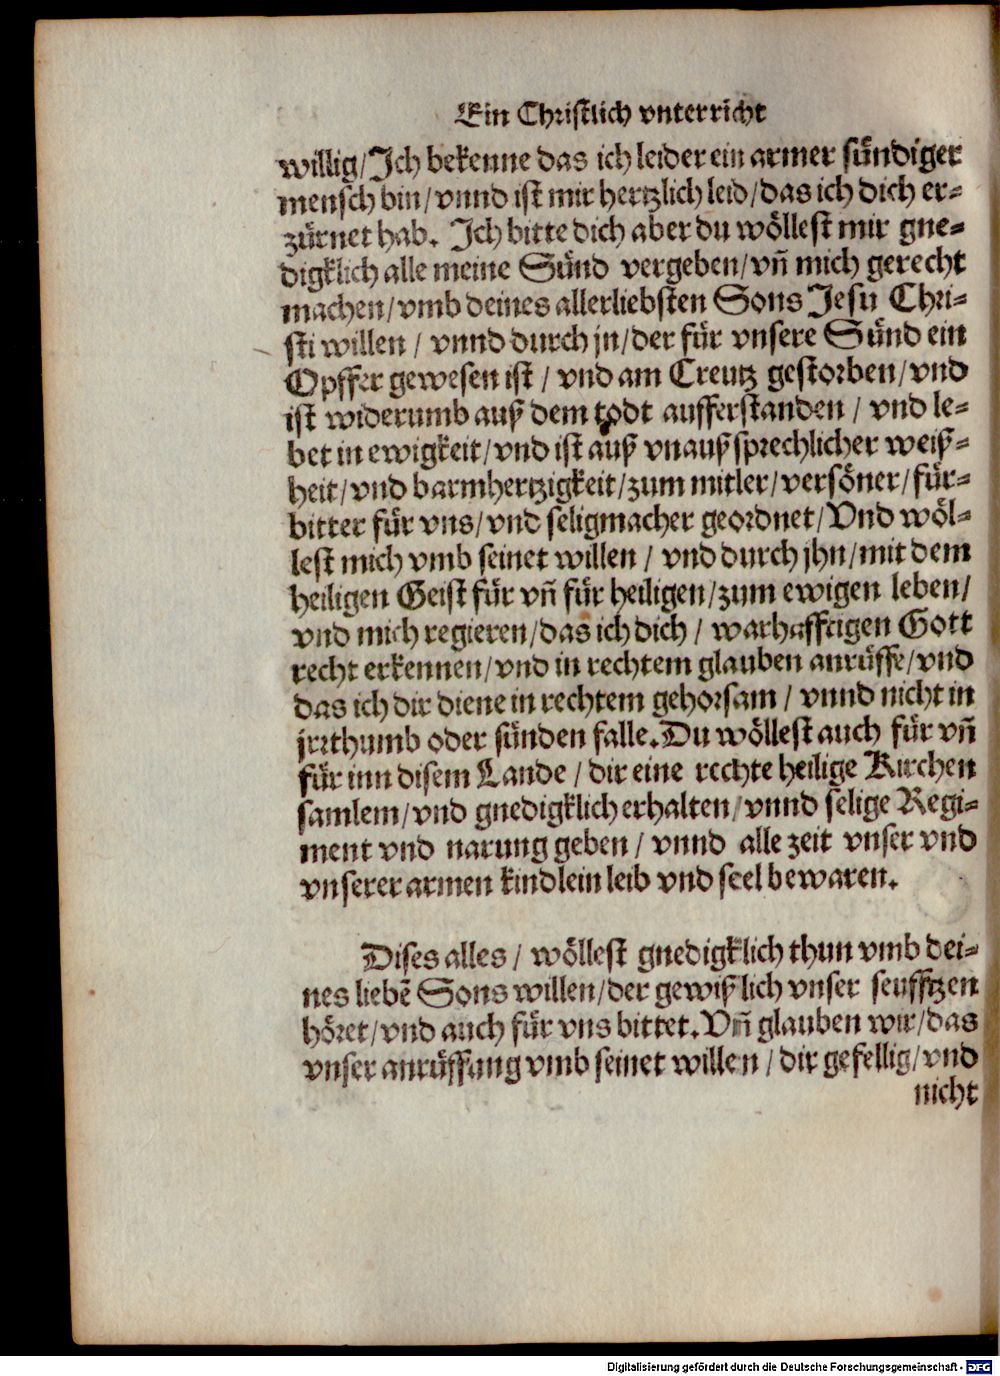 Ein Christlich vnterricht
willig/ Ich bekenne das ich leider ein armer sündiger
mensch bin/ vnnd ist mir hertzlich leid/ das ich dich er-
zürnet hab. Ich bitte dich aber du wöllest mir gne-
digklich alle meine Sünd vergeben/ vñ mich gerecht
machen/ vmb deines allerliebsten Sons Jesu Chri-
sti willen/ vnnd durch jn/ der für vnsere Sünd ein
Opffer gewesen ist/ vnd am Creutz gestorben/ vnd
ist widerumb auß dem todt aufferstanden/ vnd le-
bet in ewigkeit/ vnd ist auß vnaußsprechlicher weiß-
heit/ vnd barmhertzigkeit/ zum mitler/ versöner/ für-
bitter für vns/ vnd seligmacher geordnet/ Vnd wöl-
lest mich vmb seinet willen/ vnd durch jhn/ mit dem
heiligen Geist für vñ für heiligen/ zum ewigen leben/
vnd mich regieren/ das ich dich/ warhafftigen Gott
recht erkennen/ vnd in rechtem glauben anrüffe/ vnd
das ich dir diene in rechtem gehorsam/ vnnd nicht in
jrrthumb oder sünden falle. Du wöllest auch für vñ
für inn disem Lande/ dir eine rechte heilige Kirchen
samlem/ vnd gnedigklich erhalten/ vnnd selige Regi-
ment vnd narung geben/ vnnd alle zeit vnser vnd
vnserer armen kindlein leib vnd seel bewaren.
Dises alles/ wöllest gnedigklich thun vmb dei-
nes liebẽ Sons willen/ der gewißlich vnser seufftzen
höret/ vnd auch für vns bittet. Vñ glauben wir/ das
vnser anrüffung vmb seinet willen/ dir gefellig/ vnd
nicht
Digitalisierung gefördert durch die Deutsche Forschungsgemeinschaft - DFG